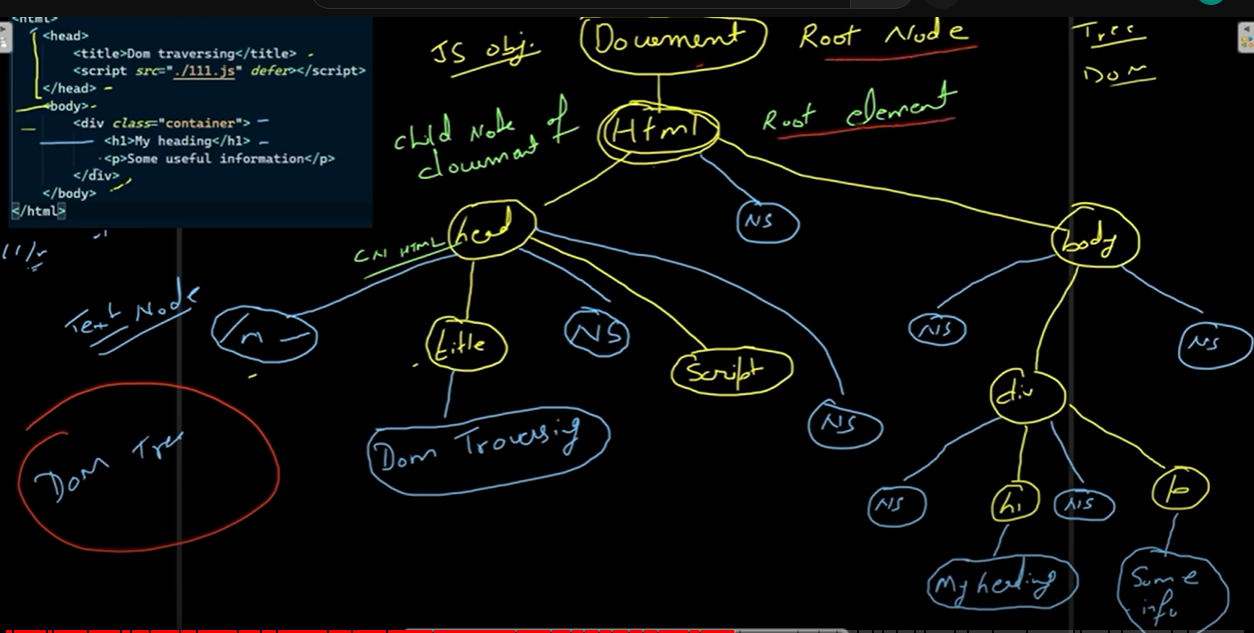 <html>
<head>
<title>Dom traversing</title>
<script src="./111.js" defer></script>
</head>
<body>
<div class="container">
<h1>My heading</h1>
<p>Some useful information</p>
</div>
</body>
</html>
JS obj:
Document
Root Node
Tree
DOM
child Node of
document
Html
Root element
CN HTML
head
NS
body
Text Node
\n
title
NS
Script
NS
NS
NS
Dom Traversing
div
Dom Tree
NS
h1
NS
p
My heading
Some
info